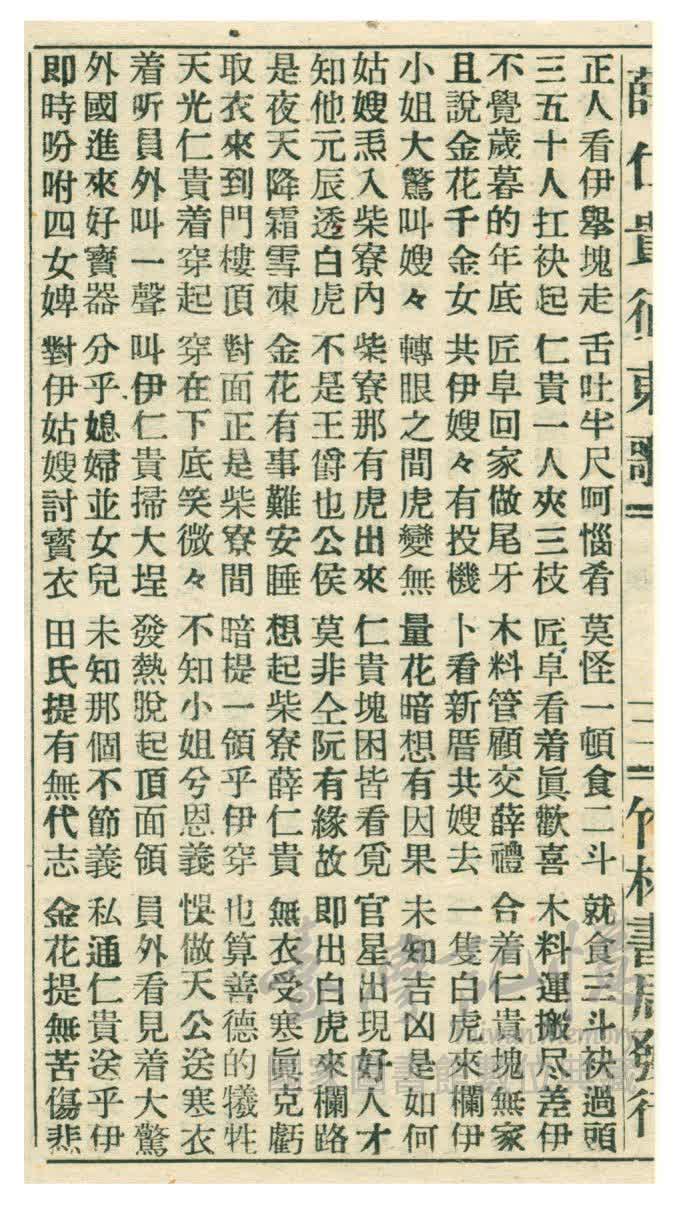 薛仁貴征東歌 竹林書局發行
正人看伊舉塊走 舌吐半尺呵惱肴 莫怪一頓食二斗 就食三斗袂過頭
三五十人扛袂起 仁貴一人夾三枝 匠阜看着眞歡喜 木料運搬尽差伊
不覺歲暮的年底 匠阜回家做尾牙 木料管顧交薛禮 合着仁貴塊無家
且說金花千金女 共伊嫂々有投機 卜看新厝共嫂去 一隻白虎來欄伊
小姐大驚叫嫂々 轉眼之間虎變無 量花暗想有因果 未知吉凶是如何
姑嫂𤆬入柴寮內 柴寮那有虎出來 仁貴塊困皆看覓 官星出現好人才
知他元辰透白虎 不是王爵也公侯 莫非仝阮有緣故 即出白虎來欄路
是夜天降霜雪凍 金花有事難安睡 想起柴寮薛仁貴 無衣受寒眞克虧
取衣來到門樓頂 對面正是柴寮間 暗提一領乎伊穿 也算善德的犧牲
天光仁貴着穿起 穿在下底笑微々 不知小姐兮恩義 悞做天公送寒衣
着听員外叫一聲 叫伊仁貴掃大埕 發熱脫起頂面領 員外看見着大驚
外國進來好寶器 分乎媳婦並女兒 未知那個不節義 私通仁貴送乎伊
即時吩咐四女婢 對伊姑嫂討寶衣 田氏提有無代志 金花提無苦傷悲